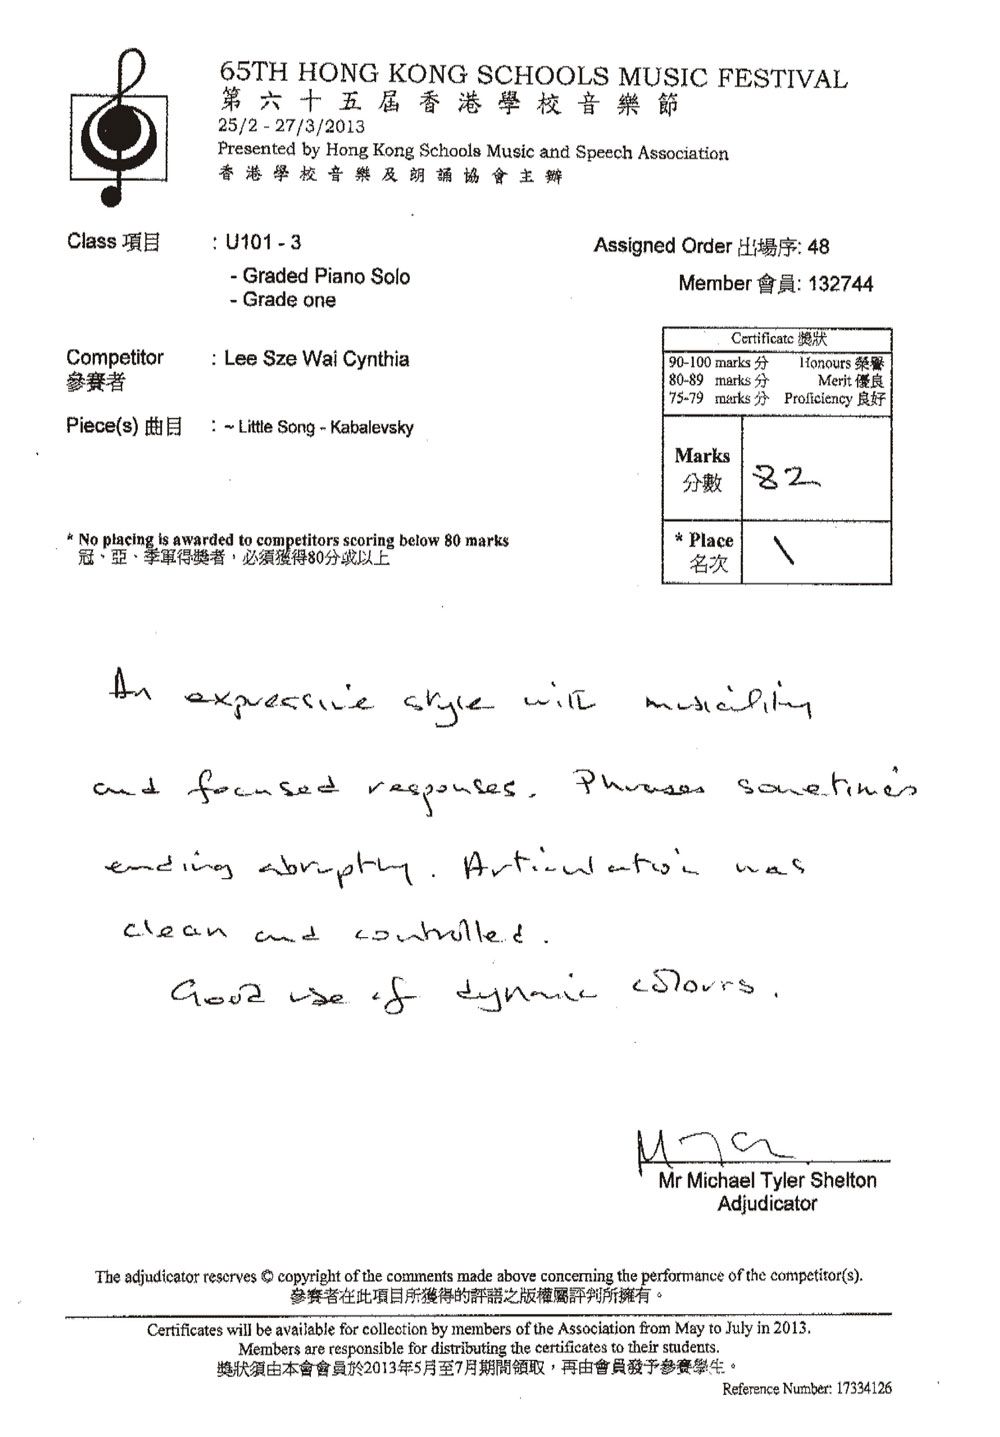 65TH HONG KONG SCHOOLS MUSIC FESTIVAL
第六十五屆香港學校音樂節
25/2 - 27/3/2013
Presented by Hong Kong Schools Music and Speech Association
香港學校音樂及朗誦協會主辦
Class 項目 : U101 - 3
- Graded Piano Solo
- Grade one
Assigned Order 出場序: 48
Member 會員: 132744
Competitor : Lee Sze Wai Cynthia
參賽者
Piece(s) 曲目 : ~ Little Song - Kabalevsky
Certificate 獎狀
90-100 marks 分 Honours 榮譽
80-89 marks 分 Merit 優良
75-79 marks 分 Proficiency 良好
Marks 82
分數
* Place \
名次
* No placing is awarded to competitors scoring below 80 marks
冠、亞、季軍得獎者，必須獲得80分或以上
An expressive style with musicality
and focused responses. Phrases sometimes
ending abruptly. Articulation was
clean and controlled.
Good use of dynamic colours.
Mr Michael Tyler Shelton
Adjudicator
The adjudicator reserves © copyright of the comments made above concerning the performance of the competitor(s).
參賽者在此項目所獲得的評語之版權屬評判所擁有。
Certificates will be available for collection by members of the Association from May to July in 2013.
Members are responsible for distributing the certificates to their students.
獎狀須由本會會員於2013年5月至7月期間領取，再由會員發予參賽學生。
Reference Number: 17334126